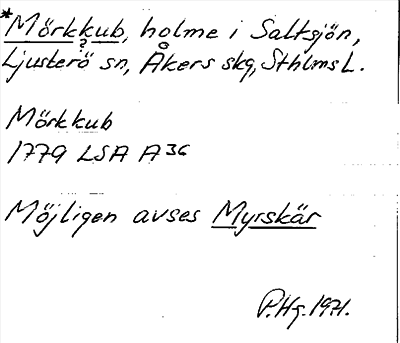 *Mörkkub, holme i Saltsjön,
?
Ljusterö sn, Åkers skg, Sthlms L.
Mörkkub
1779 LSA A36
Möjligen avses Myrskär
P.Hg. 1971.